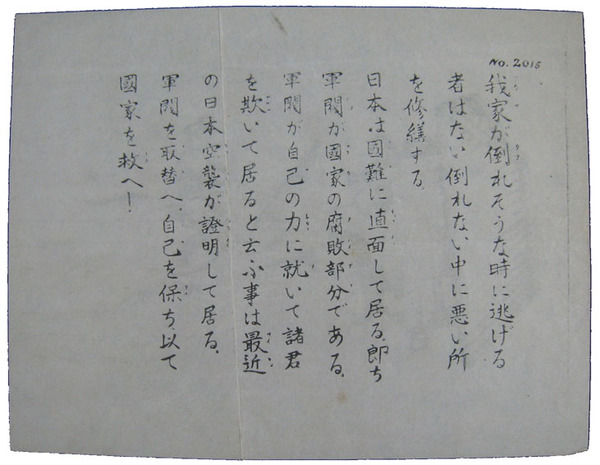 No. 2016
我家が倒れそうな時に逃げる
者はない倒れない中に悪い所
を修繕する、
日本は國難に直面して居る、即ち
軍閥が國家の腐敗部分である、
軍閥が自己の力に就いて諸君
を欺いて居ると云ふ事は最近
の日本空襲が證明して居る、
軍閥を取替へ、自己を保ち以て
國家を救へ!